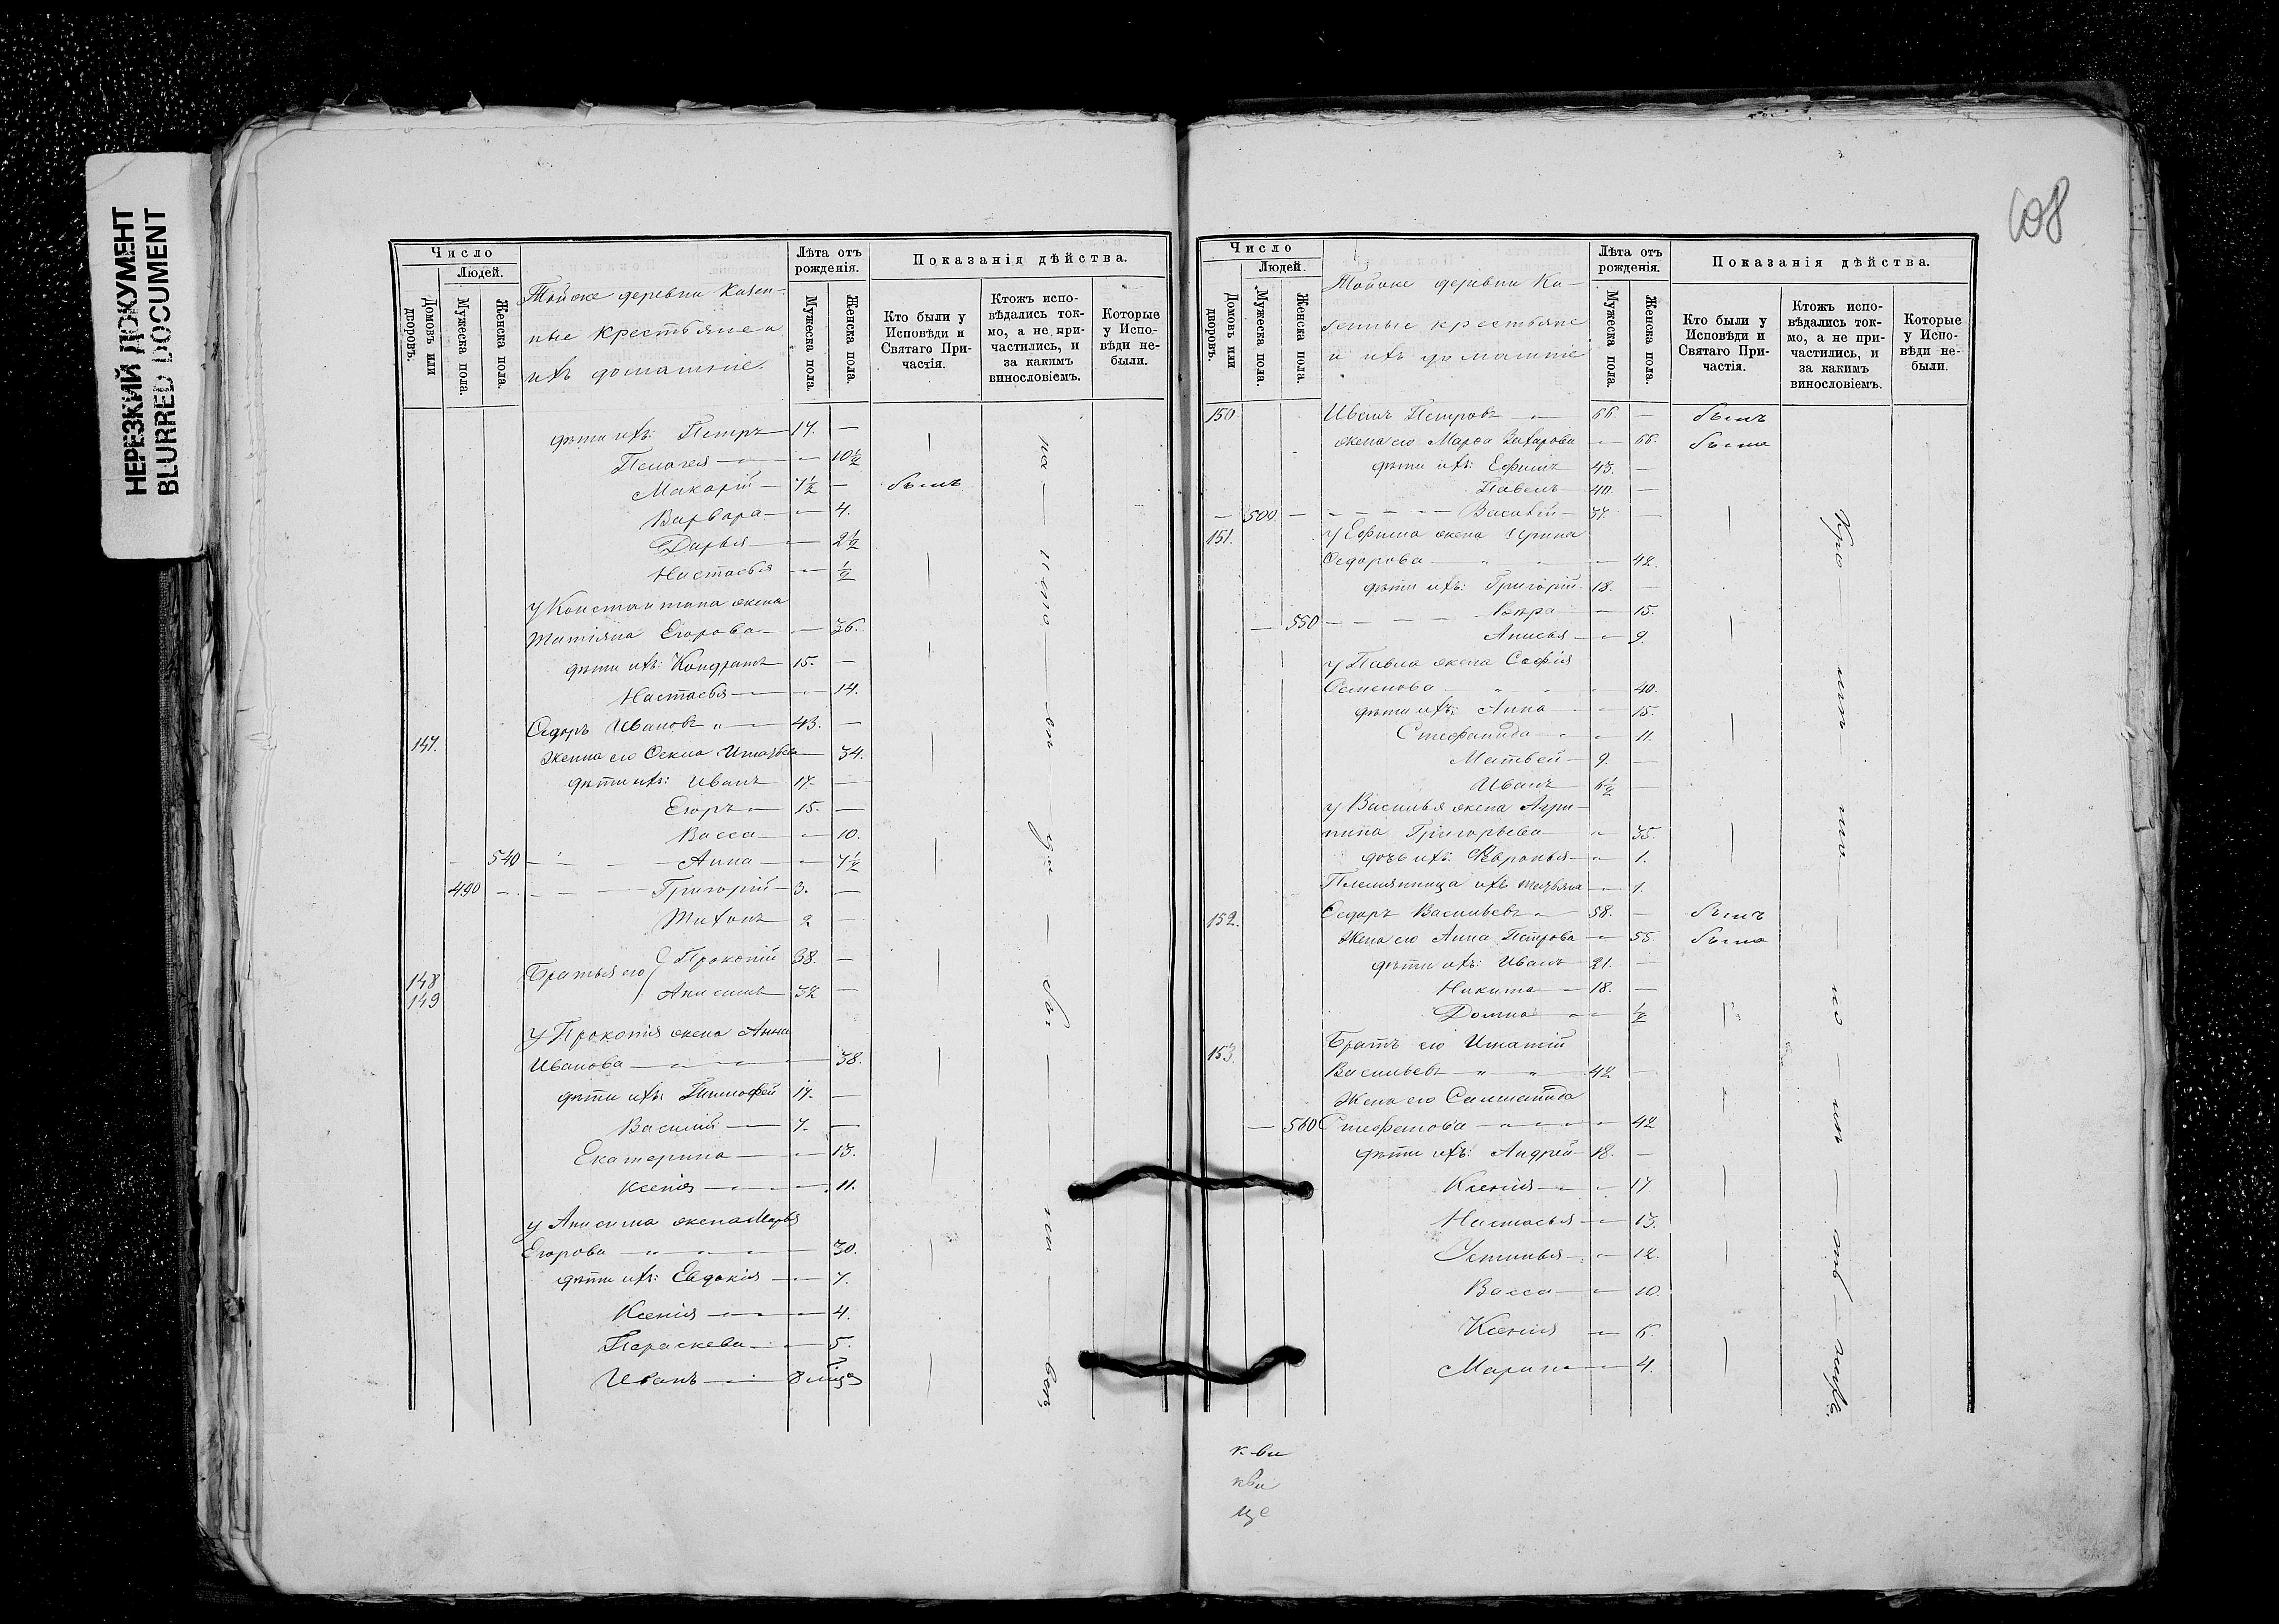 НЕРЕЗКИЙ ДОКУМЕНТ
BLURRED DOCUMENT
Число
Людей.
Домовъ или дворовъ.
Мужеска пола.
Женска пола.
Тойже деревни Казен-
ные крестьяне и
ихъ домашніе.
Лѣта отъ рожденія.
Мужеска пола.
Женска пола.
Показанія дѣйства.
Кто были у Исповѣди и Святаго При-частія.
Ктожъ испо-вѣдались ток-мо, а не при-частились, и за какимъ винословіемъ.
Которые у Испо-вѣди не-были.
дѣти ихъ: Петръ 17. —
Пелагея — 10½
Макарій 7½ — былъ
Варвара — 4.
Дарья — 2½
Настасья — ½
у Константина жена
Татіяна Егорова — 36.
дѣти ихъ: Кондратъ 15. —
Настасья — 14.
147. Ѳедоръ Ивановъ 43. —
Жена его Ѳекла — 34.
дѣти ихъ: Иванъ 17. —
Егоръ 15. —
Васса — 10.
540 Анна — 7½
490 Григорій 3. —
Тихонъ 2 —
148 Братья его Прокопій 38. —
149 Анисимъ 32 —
у Прокопія жена Анна
Иванова — 38.
дѣти ихъ: Тимофей 17. —
Василій 7. —
Екатерина — 13.
Ксенія — 11.
у Анисима жена Марья
Егорова — 30.
дѣти ихъ: Евдокія — 7.
Ксенія — 4.
Параскева — 5.
Иванъ — 8
108
Число
Людей.
Домовъ или дворовъ.
Мужеска пола.
Женска пола.
Тойже деревни Ка-
зенные крестьяне
и ихъ домашніе
Лѣта отъ рожденія.
Мужеска пола.
Женска пола.
Показанія дѣйства.
Кто были у Исповѣди и Святаго При-частія.
Ктожъ испо-вѣдались ток-мо, а не при-частились, и за какимъ винословіемъ.
Которые у Испо-вѣди не-были.
150 Иванъ Петровъ 66 — былъ
жена его Марѳа Захарова — 66. была
дѣти ихъ: Ефимъ 43. —
Павелъ 40. —
500 Василій 37. —
151. у Ефима жена
Ѳедорова — 42.
дѣти ихъ: Григорій 18. —
550 Вѣра — 15.
Анисья — 9.
у Павла жена Софія
Семенова — 40.
дѣти ихъ: Анна — 15.
Стефанида — 11.
Матвей 9. —
Иванъ 6½ —
у Василья жена Агри-
пина Григорьева — 35.
дочь ихъ: — 1.
Племянница ихъ — 1.
152. Ѳедоръ Васильевъ 58. — былъ
Жена его Анна Петрова — 55. была
дѣти ихъ: Иванъ 21. —
Никита 18. —
Домна — ½
153. Братъ его Игнатій
Васильевъ 42 —
Жена его
560 Стефанова — 42
дѣти ихъ: Андрей 18. —
Ксенія — 17.
Настасья — 13.
Устинья — 12.
Васса — 10.
Ксенія — 6.
Марина — 4.